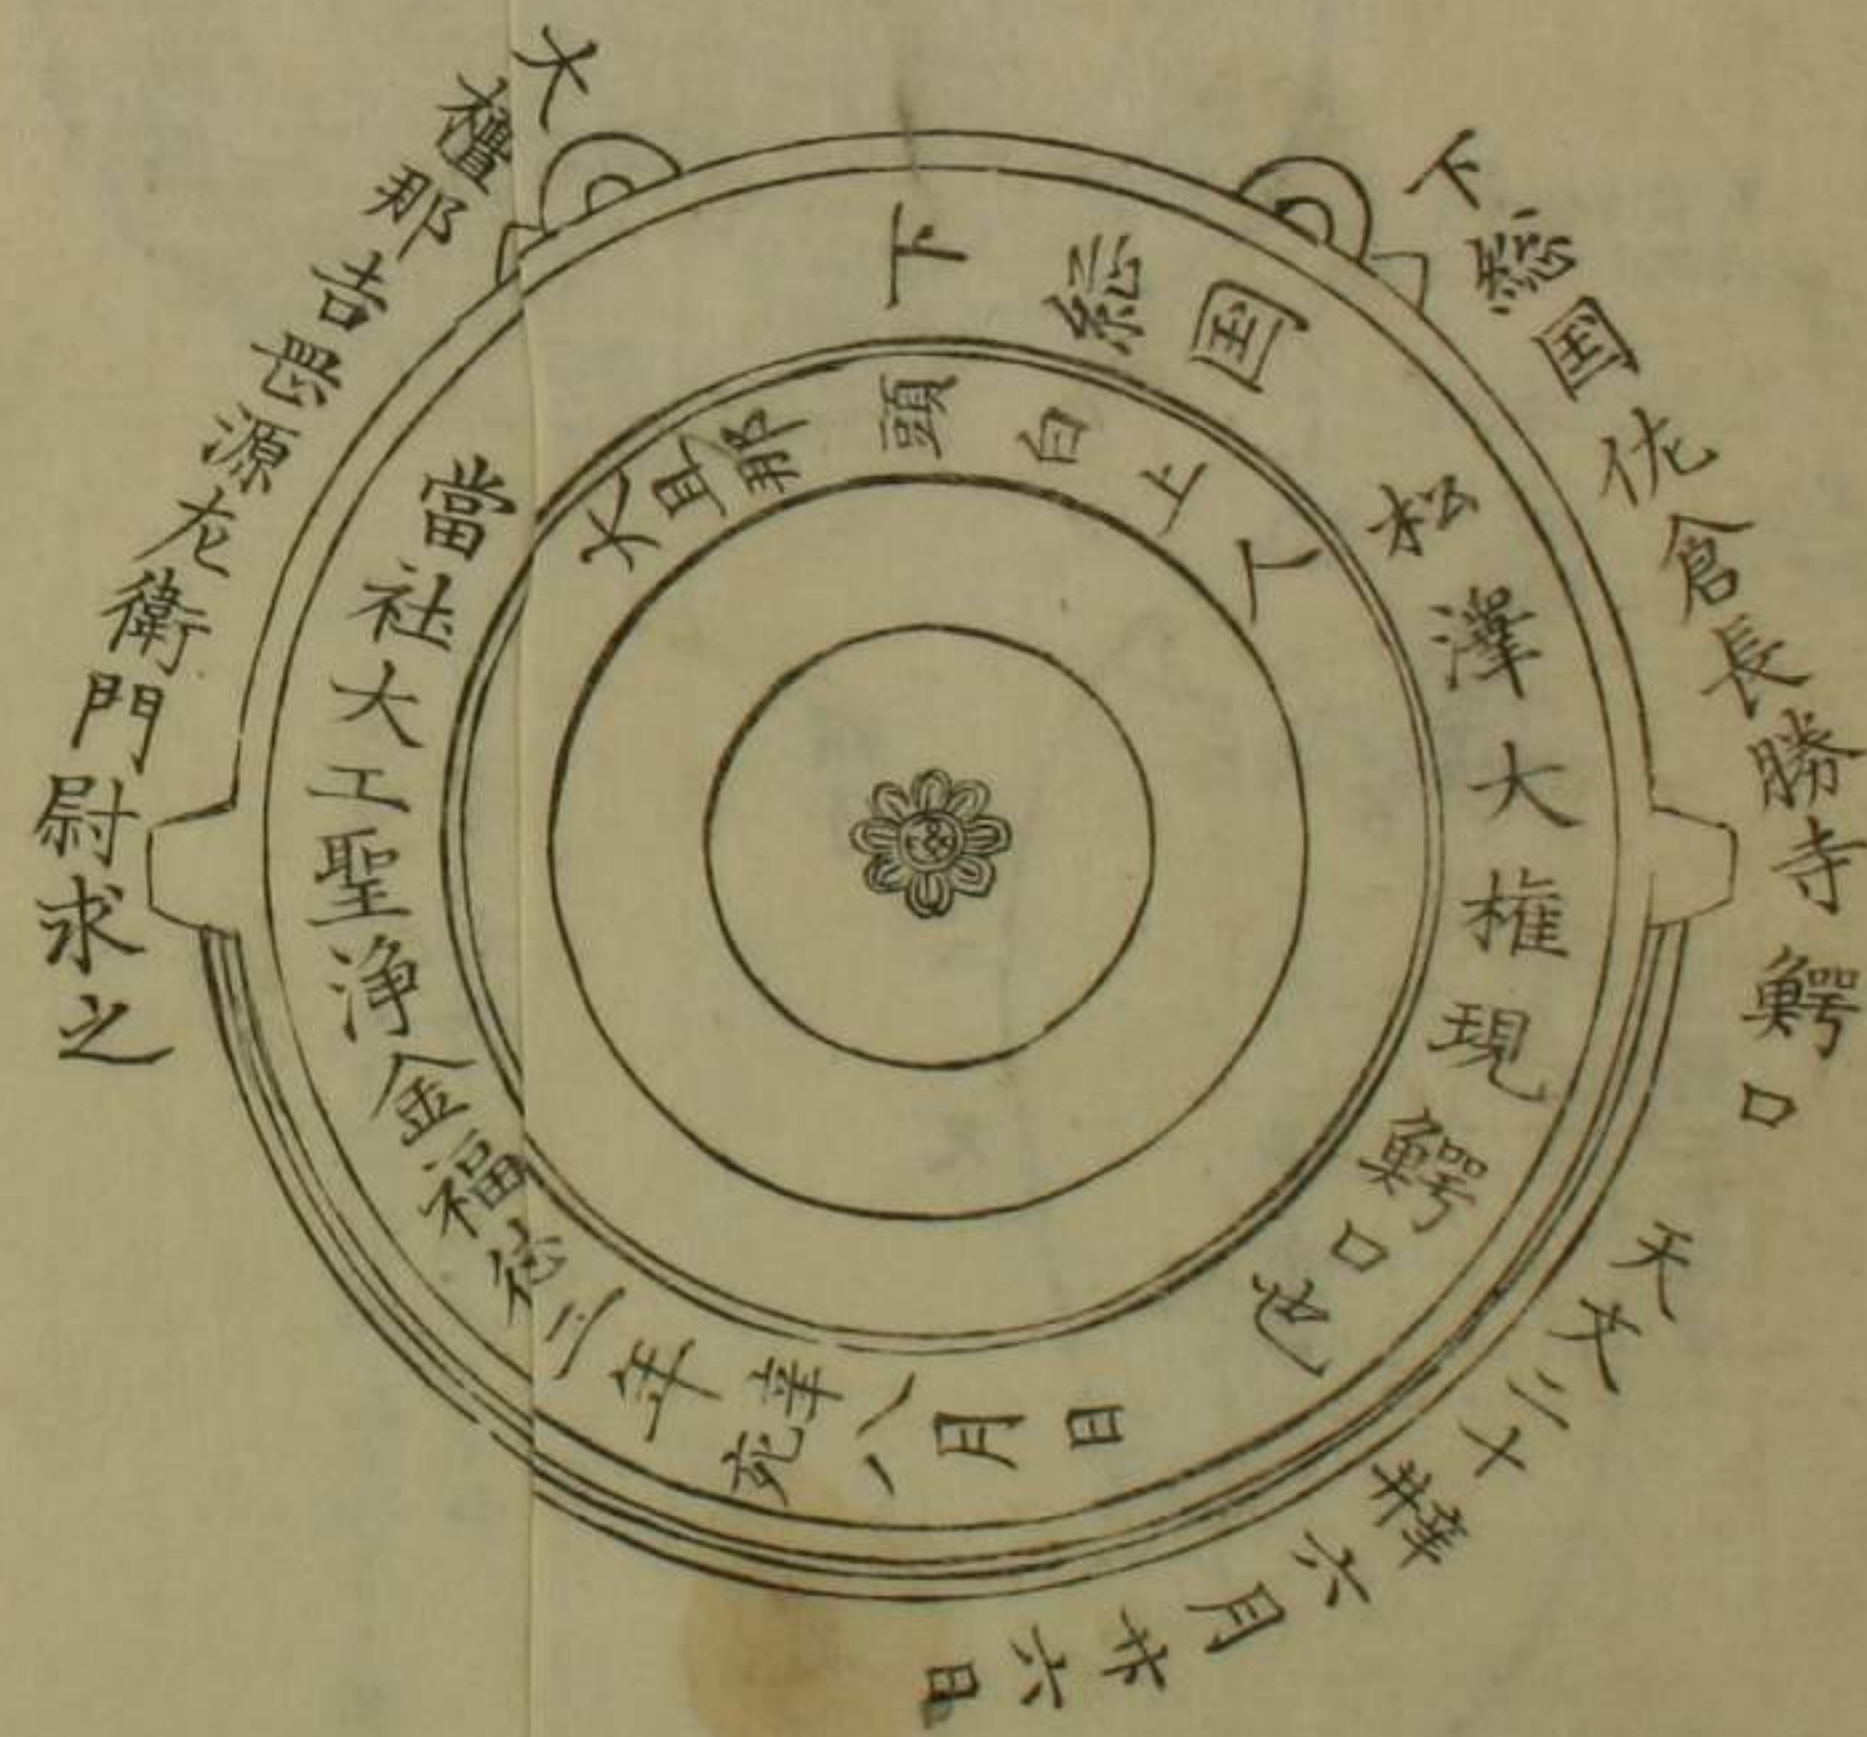 下総国佐倉長勝寺鰐口
天文二十辛亥六月廿六日
大檀那吉良源左衛門尉求之
下総国松澤大権現鰐口也
當社大工聖浄金福徳二年辛亥八月日
大旦那頭白上人